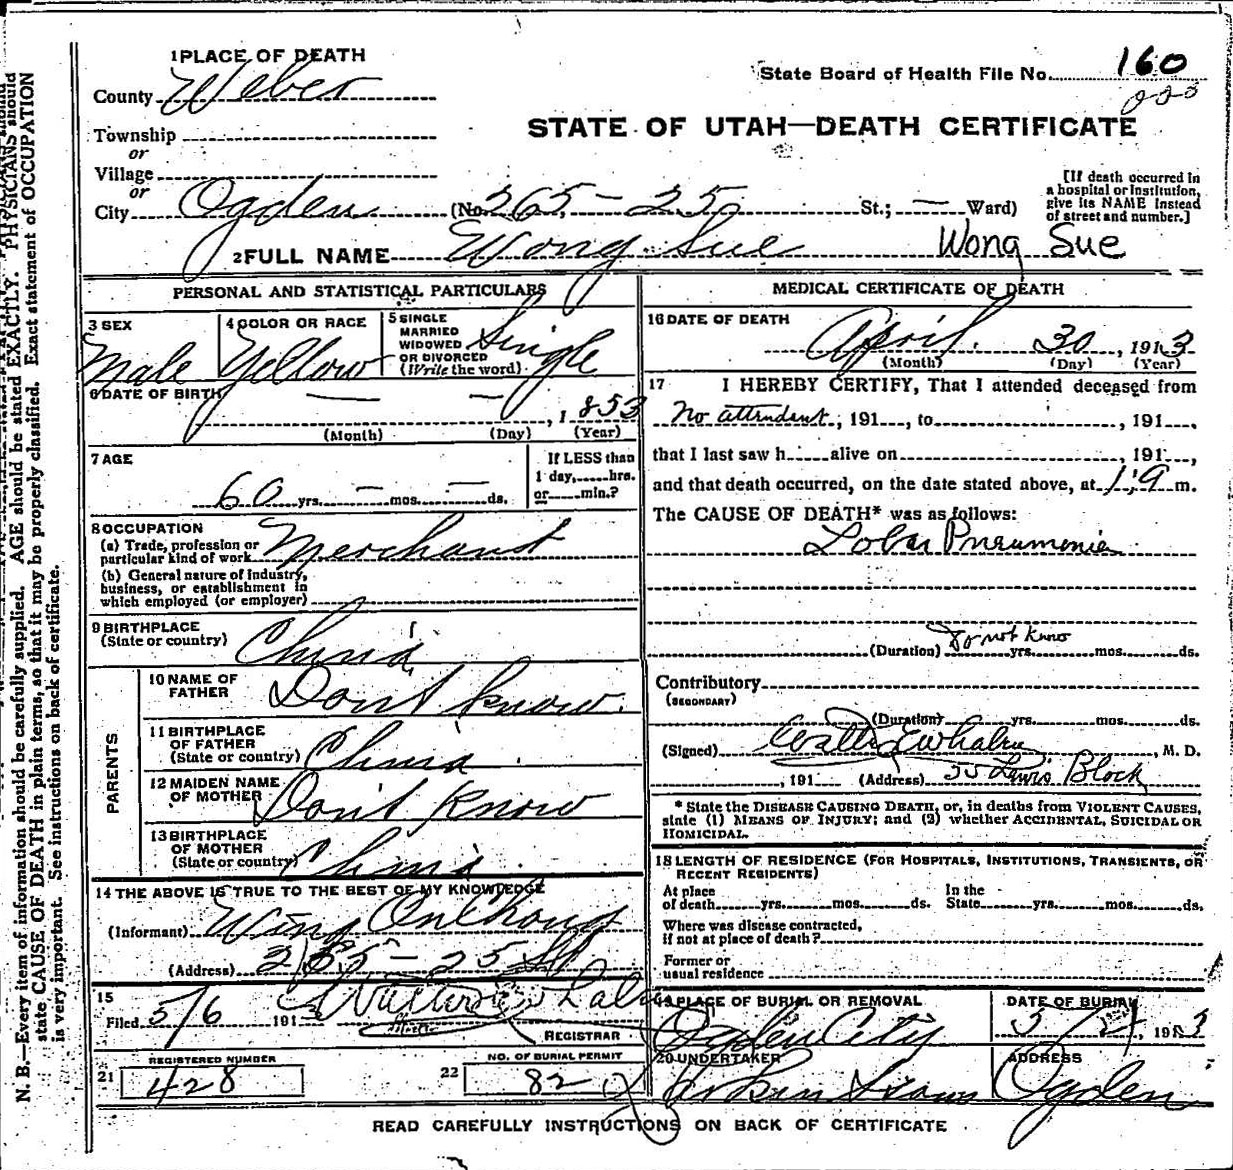 1 PLACE OF DEATH
County Weber
State Board of Health File No. 160
Township
or
Village
or
STATE OF UTAH—DEATH CERTIFICATE
City Ogden (No. 265 - 25 St.; — Ward)
[If death occurred in
a hospital or institution,
give its NAME instead
of street and number.]
2 FULL NAME Wong Sue Wong Sue
PERSONAL AND STATISTICAL PARTICULARS
3 SEX
Male
4 COLOR OR RACE
Yellow
5 SINGLE
MARRIED
WIDOWED
OR DIVORCED
(Write the word)
Single
6 DATE OF BIRTH
— — , 1853
(Month) (Day) (Year)
7 AGE
60 yrs. — mos. — ds.
If LESS than
1 day, hrs.
or min.?
8 OCCUPATION
(a) Trade, profession or
particular kind of work Merchant
(b) General nature of industry,
business, or establishment in
which employed (or employer)
9 BIRTHPLACE
(State or country) China
PARENTS
10 NAME OF
FATHER Dont know.
11 BIRTHPLACE
OF FATHER
(State or country) China
12 MAIDEN NAME
OF MOTHER Don't Know
13 BIRTHPLACE
OF MOTHER
(State or country) China
14 THE ABOVE IS TRUE TO THE BEST OF MY KNOWLEDGE
(Informant) Wing
(Address) 265 - 25 St
15
Filed 5/6 1913
REGISTRAR
REGISTERED NUMBER
21 428
NO. OF BURIAL PERMIT
22 82
MEDICAL CERTIFICATE OF DEATH
16 DATE OF DEATH
April. 30, 1913
(Month) (Day) (Year)
17 I HEREBY CERTIFY, That I attended deceased from
No attendent, 191 , to , 191 ,
that I last saw h alive on , 191 ,
and that death occurred, on the date stated above, at m.
The CAUSE OF DEATH* was as follows:
Lobar Pneumonia
(Duration) Do not know yrs. mos. ds.
Contributory
(SECONDARY)
(Duration) yrs. mos. ds.
(Signed) Whalen, M. D.
, 191 (Address) Lewis Block
* State the DISEASE CAUSING DEATH, or, in deaths from VIOLENT CAUSES,
state (1) MEANS OF INJURY; and (2) whether ACCIDENTAL, SUICIDAL OR
HOMICIDAL.
18 LENGTH OF RESIDENCE (FOR HOSPITALS, INSTITUTIONS, TRANSIENTS, OR
RECENT RESIDENTS)
At place
of death yrs. mos. ds.
In the
State yrs. mos. ds.
Where was disease contracted,
if not at place of death?
Former or
usual residence
19 PLACE OF BURIAL OR REMOVAL
Ogden City
DATE OF BURIAL
1913
20 UNDERTAKER
ADDRESS
Ogden
READ CAREFULLY INSTRUCTIONS ON BACK OF CERTIFICATE
N. B.—Every item of information should be carefully supplied. AGE should be stated EXACTLY. PHYSICIANS should
state CAUSE OF DEATH in plain terms, so that it may be properly classified. Exact statement of OCCUPATION
is very important. See instructions on back of certificate.